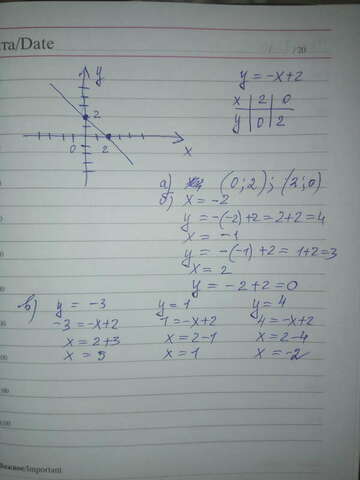 та/Date
/20
y
2
0
2
x
y = -x+2
x 2 0
y 0 2
а) (0;2); (2;0)
б) x = -2
y = -(-2)+2 = 2+2 = 4
x = -1
y = -(-1)+2 = 1+2 = 3
x = 2
y = -2+2 = 0
в) y = -3 y = 1 y = 4
-3 = -x+2 1 = -x+2 4 = -x+2
x = 2+3 x = 2-1 x = 2-4
x = 5 x = 1 x = -2
/Important